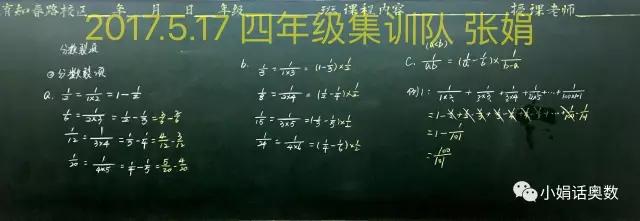 育知春路校区 年 月 日 年级 班 课程内容 授课老师
2017.5.17 四年级集训队 张娟
分数裂项
①分数裂项
a. 1/2 = 1/1×2 = 1 - 1/2
1/6 = 1/2×3 = 1/2 - 1/3 = 3/6 - 2/6
1/12 = 1/3×4 = 1/3 - 1/4 = 4/12 - 3/12
1/20 = 1/4×5 = 1/4 - 1/5 = 5/20 - 4/20
b. 1/3 = 1/1×3 = (1 - 1/3)×1/2
1/8 = 1/2×4 = (1/2 - 1/4)×1/2
1/15 = 1/3×5 = (1/3 - 1/5)×1/2
1/24 = 1/4×6 = (1/4 - 1/6)×1/2
(a<b)
c. 1/ab = (1/a - 1/b)×1/b-a
例1: 1/1×2 + 1/2×3 + 1/3×4 + 1/4×5 + ... + 1/100×101
= 1 - 1/2 + 1/2 - 1/3 + 1/3 - 1/4 + ... + 1/100 - 1/101
= 1 - 1/101
= 100/101
小娟话奥数